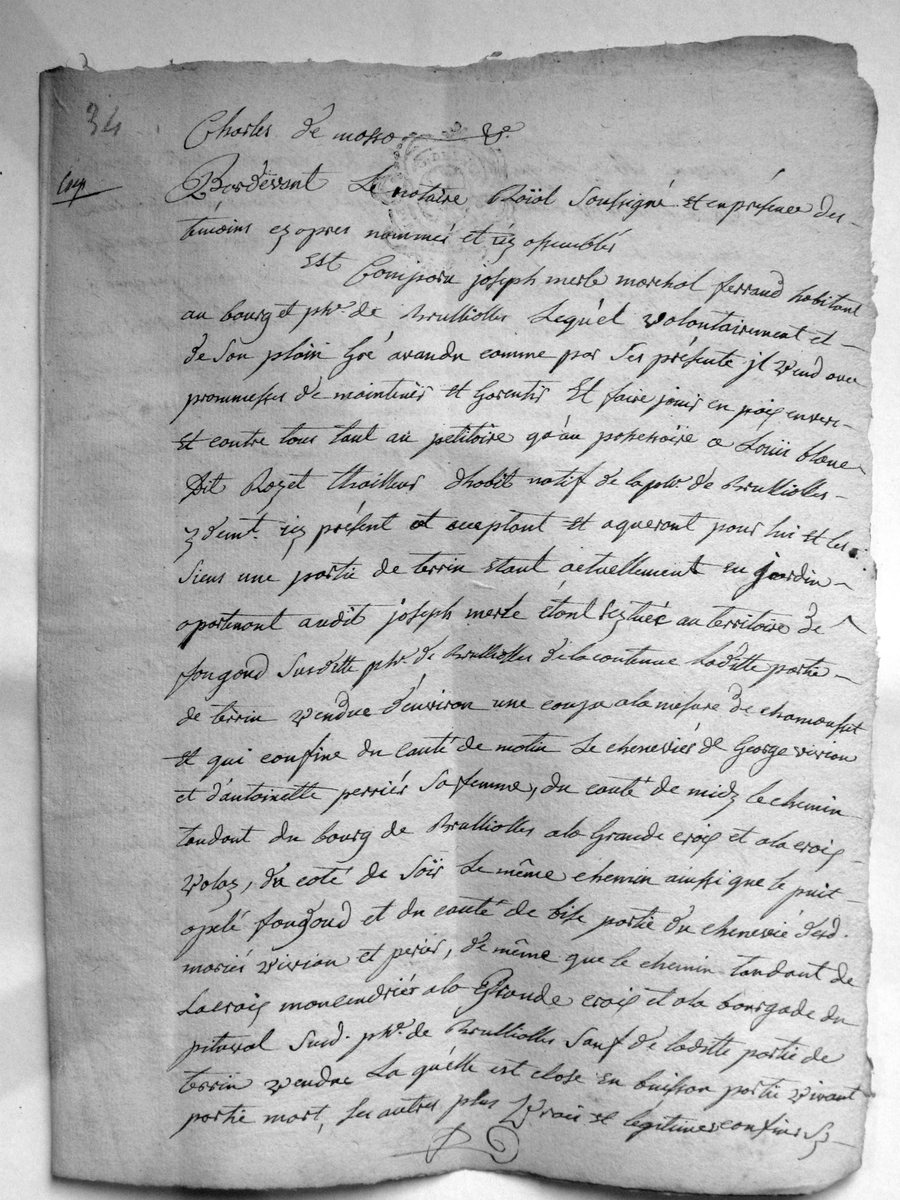 34
Charles de masso
Exp
Pardevant Le notaire Roïal Soussigné et en présence des
témoins cy apres nommés et icy assemblés
Est Comparu joseph merle marchal ferrand habitant
au bourg et phe. de Brulliolles Lequel volontairement et
de son plain Gré avandu comme par ses présente jl vend avec
prommesses de maintenir et Garentir Et faire jouir en paix envers
et contre tous tant au petitoire qu'au possessoire a Louis blanc
dit Rozet thailleur dhabit natif de la phe. de Brulliolles
y demt. icy présent et acceptant et aquerant pour lui et les
siens une partie de terrin étant actuellement en jardin
apartenant audit joseph merle étant scytuéé au territoire de
fougoud Susditte phe. de Brulliolles de la contenue laditte partie
de terrin vendue d'énviron une coupe ala mesure de chamousset
et qui confine du couté de matin Le cheneviér de George vivian
et d'antoinette perriér sa femme, du couté de midy le chemin
tandant du bourg de Brulliolles ala Grande croix et ala croix
Volaz, du coté de Soir Le même chemin aussi que le puit
apelé fougoud et du couté de bise partie du chenevié desd.
mariés vivian et periér, de même que le chemin tandant de
Lacroix moncendriér ala Grande croix et ala bourgade du
pitaval Susd. phe. de Brulliolles Sauf de laditte partie de
terrin vendue La quélle est close en buisson partie vivant
partie mort, ses autres plus vrais et legitimes confins Sy